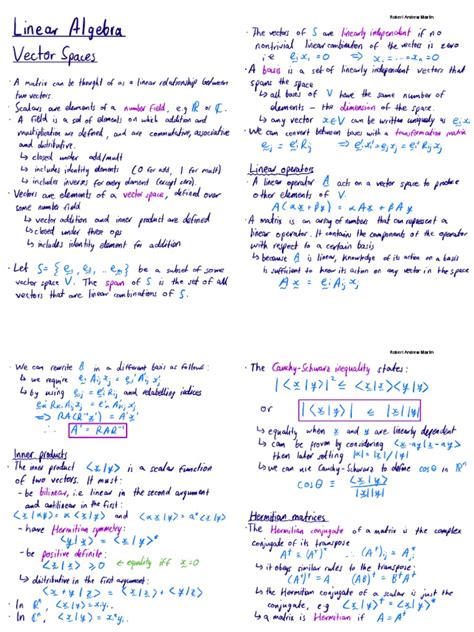 Linear Algebra
Vector Spaces
• A matrix can be thought of as a linear relationship between
two vectors.
• Scalars are elements of a number field, e.g ℝ or ℂ.
• A field is a set of elements on which addition and
multiplication are defined, and are commutative, associative
and distributive.
↳ closed under add/mult
↳ includes identity elements (0 for add, 1 for mult)
↳ includes inverses for every element (except zero)
• Vectors are elements of a vector space, defined over
some number field
↳ vector addition and inner product are defined
↳ closed under these ops
↳ includes identity element for addition
• Let S = {e₁, e₂, ... eₘ} be a subset of some
vector space V. The span of S is the set of all
vectors that are linear combinations of S.
Robert Andrew Martin
• The vectors of S are linearly independent if no
nontrivial linear combination of the vectors is zero
i.e
• A basis is a set of linearly independent vectors that
spans the space
↳ all bases of V have the same number of
elements – the dimension of the space.
↳ any vector x∈V can be written uniquely as eᵢxᵢ
• We can convert between bases with a transformation matrix
Linear operators
• A linear operator A acts on a vector space to produce
other elements of V.
A(αx + βy) = αAx + βAy
• A matrix is an array of numbers that can represent a
linear operator. It contains the components of the operator
with respect to a certain basis
↳ because A is linear, knowledge of its action on a basis
is sufficient to know its action on any vector in the space.
A x = eᵢ Aᵢⱼ xⱼ
• We can rewrite A in a different basis as follows:
↳ we require
↳ by using and relabelling indices
∴ A' = RAR⁻¹
Inner products
• The inner product <x|y> is a scalar function
of two vectors. It must:
- be bilinear, i.e linear in the second argument
and antilinear in the first:
<x|αy> = α<x|y> and <αx|y> = α*<x|y>
- have Hermitian symmetry:
<y|x> = <x|y>*
- be positive definite:
<x|x> ≥ 0 ← equality iff x = 0
↳ distributive in the first argument:
<x+y|z> = <x|z> + <y|z>
• In ℝⁿ, <x|y> = xᵢyᵢ.
• In ℂⁿ, <x|y> = xᵢ*yᵢ
Robert Andrew Martin
• The Cauchy-Schwarz inequality states:
|<x|y>|² ≤ <x|x><y|y>
or |<x|y>| ≤ |x||y|
↳ equality when x and y are linearly dependent
↳ can be proven by considering <x-αy|x-αy>
then later setting |α| = |x|/|y|
↳ we can use Cauchy-Schwarz to define cosθ in ℝⁿ
Hermitian matrices
• The Hermitian conjugate of a matrix is the complex
conjugate of its transpose
↳ it obeys similar rules to the transpose
(A†)† = A (AB)† = B†A†
↳ the Hermitian conjugate of a scalar is just the
conjugate, e.g
↳ a matrix is Hermitian if A† = A